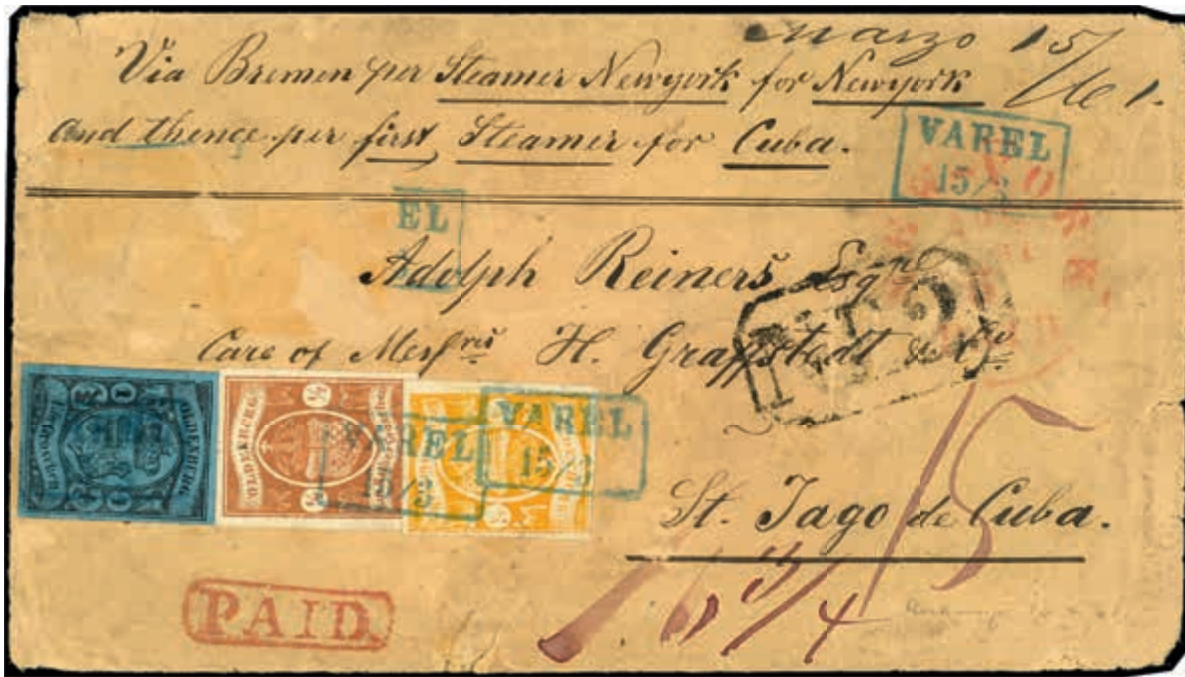 Marzo 15/61.
Via Bremen per Steamer Newyork for Newyork
And thence per first Steamer for Cuba.
VAREL
15/3
EL
Adolph Reiners Esqre
Care of Messrs H. Graffstedt & Co
OLDENBURG
VAREL
15/3
VAREL
15/3
St. Jago de Cuba.
15
PAID.